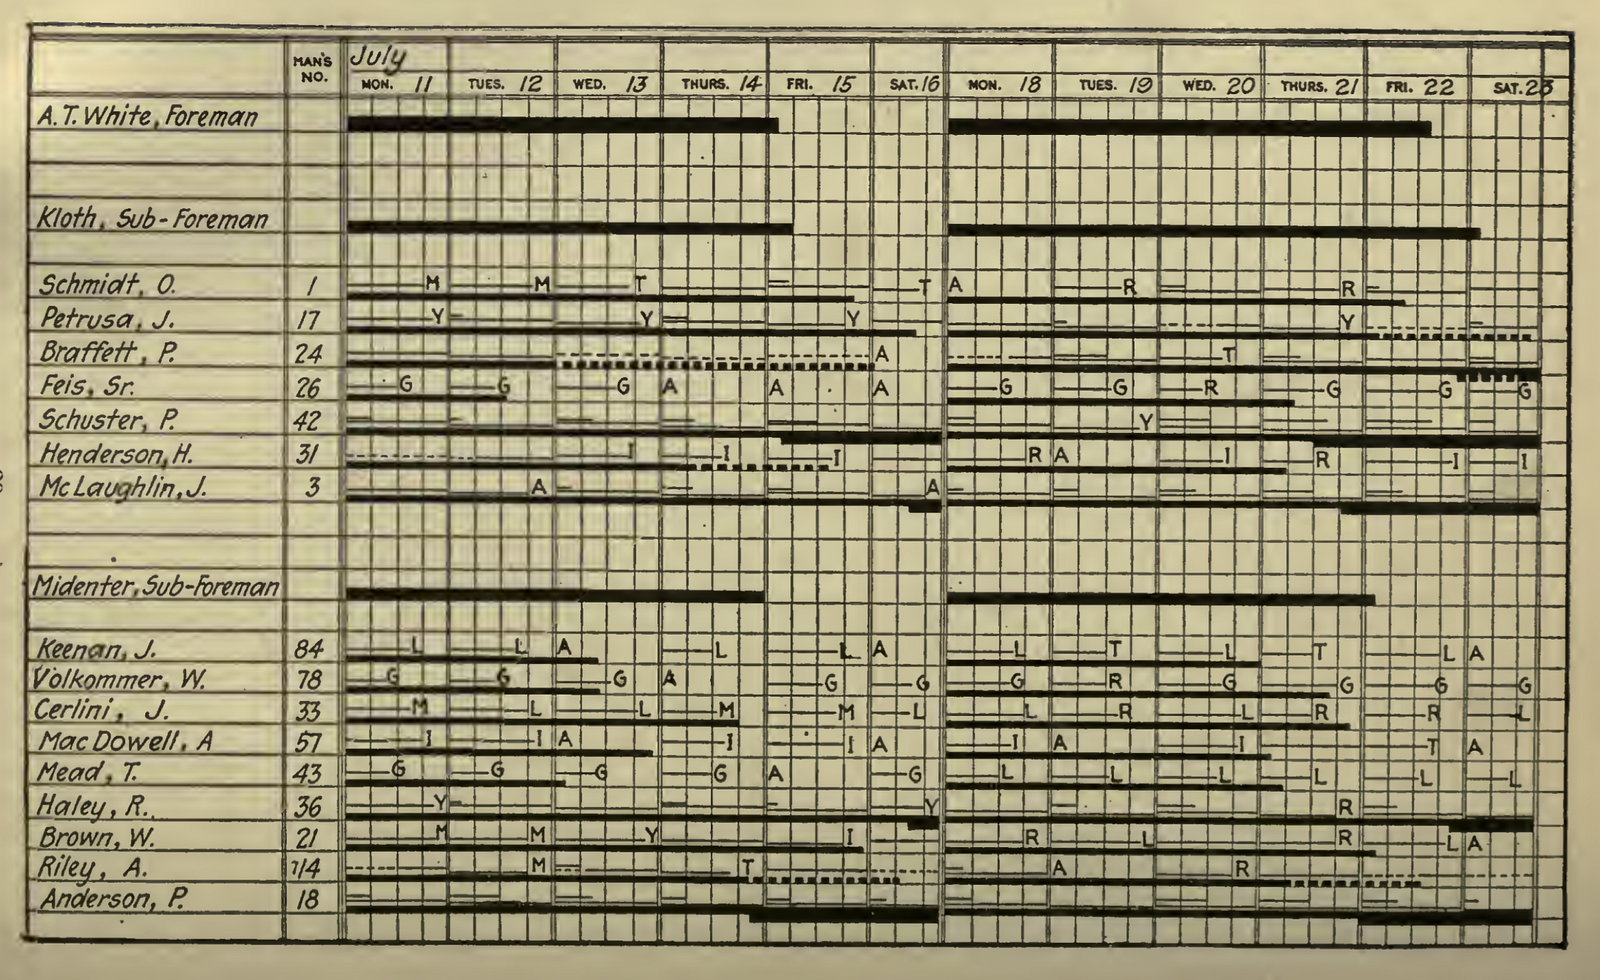 MAN'S NO. July
MON. 11 TUES. 12 WED. 13 THURS. 14 FRI. 15 SAT. 16 MON. 18 TUES. 19 WED. 20 THURS. 21 FRI. 22 SAT. 23
A. T. White, Foreman
Kloth, Sub-Foreman
Schmidt, O. 1 M M T T A R R
Petrusa, J. 17 Y Y Y Y
Braffett, P. 24 A T
Feis, Sr. 26 G G G A A A G G R G G G
Schuster, P. 42 Y
Henderson, H. 31 I I I R A I R I I
McLaughlin, J. 3 A A
Midenter, Sub-Foreman
Keenan, J. 84 L L A L L A L T L T L A
Volkommer, W. 78 G G G A G G G R G G G G
Cerlini, J. 33 M L L M M L L R L R R L
MacDowell, A 57 I I A I I A I A I T A
Mead, T. 43 G G G G A G L L L L L L
Haley, R. 36 Y Y R
Brown, W. 21 M M Y I R L R L A
Riley, A. 114 M T A R
Anderson, P. 18